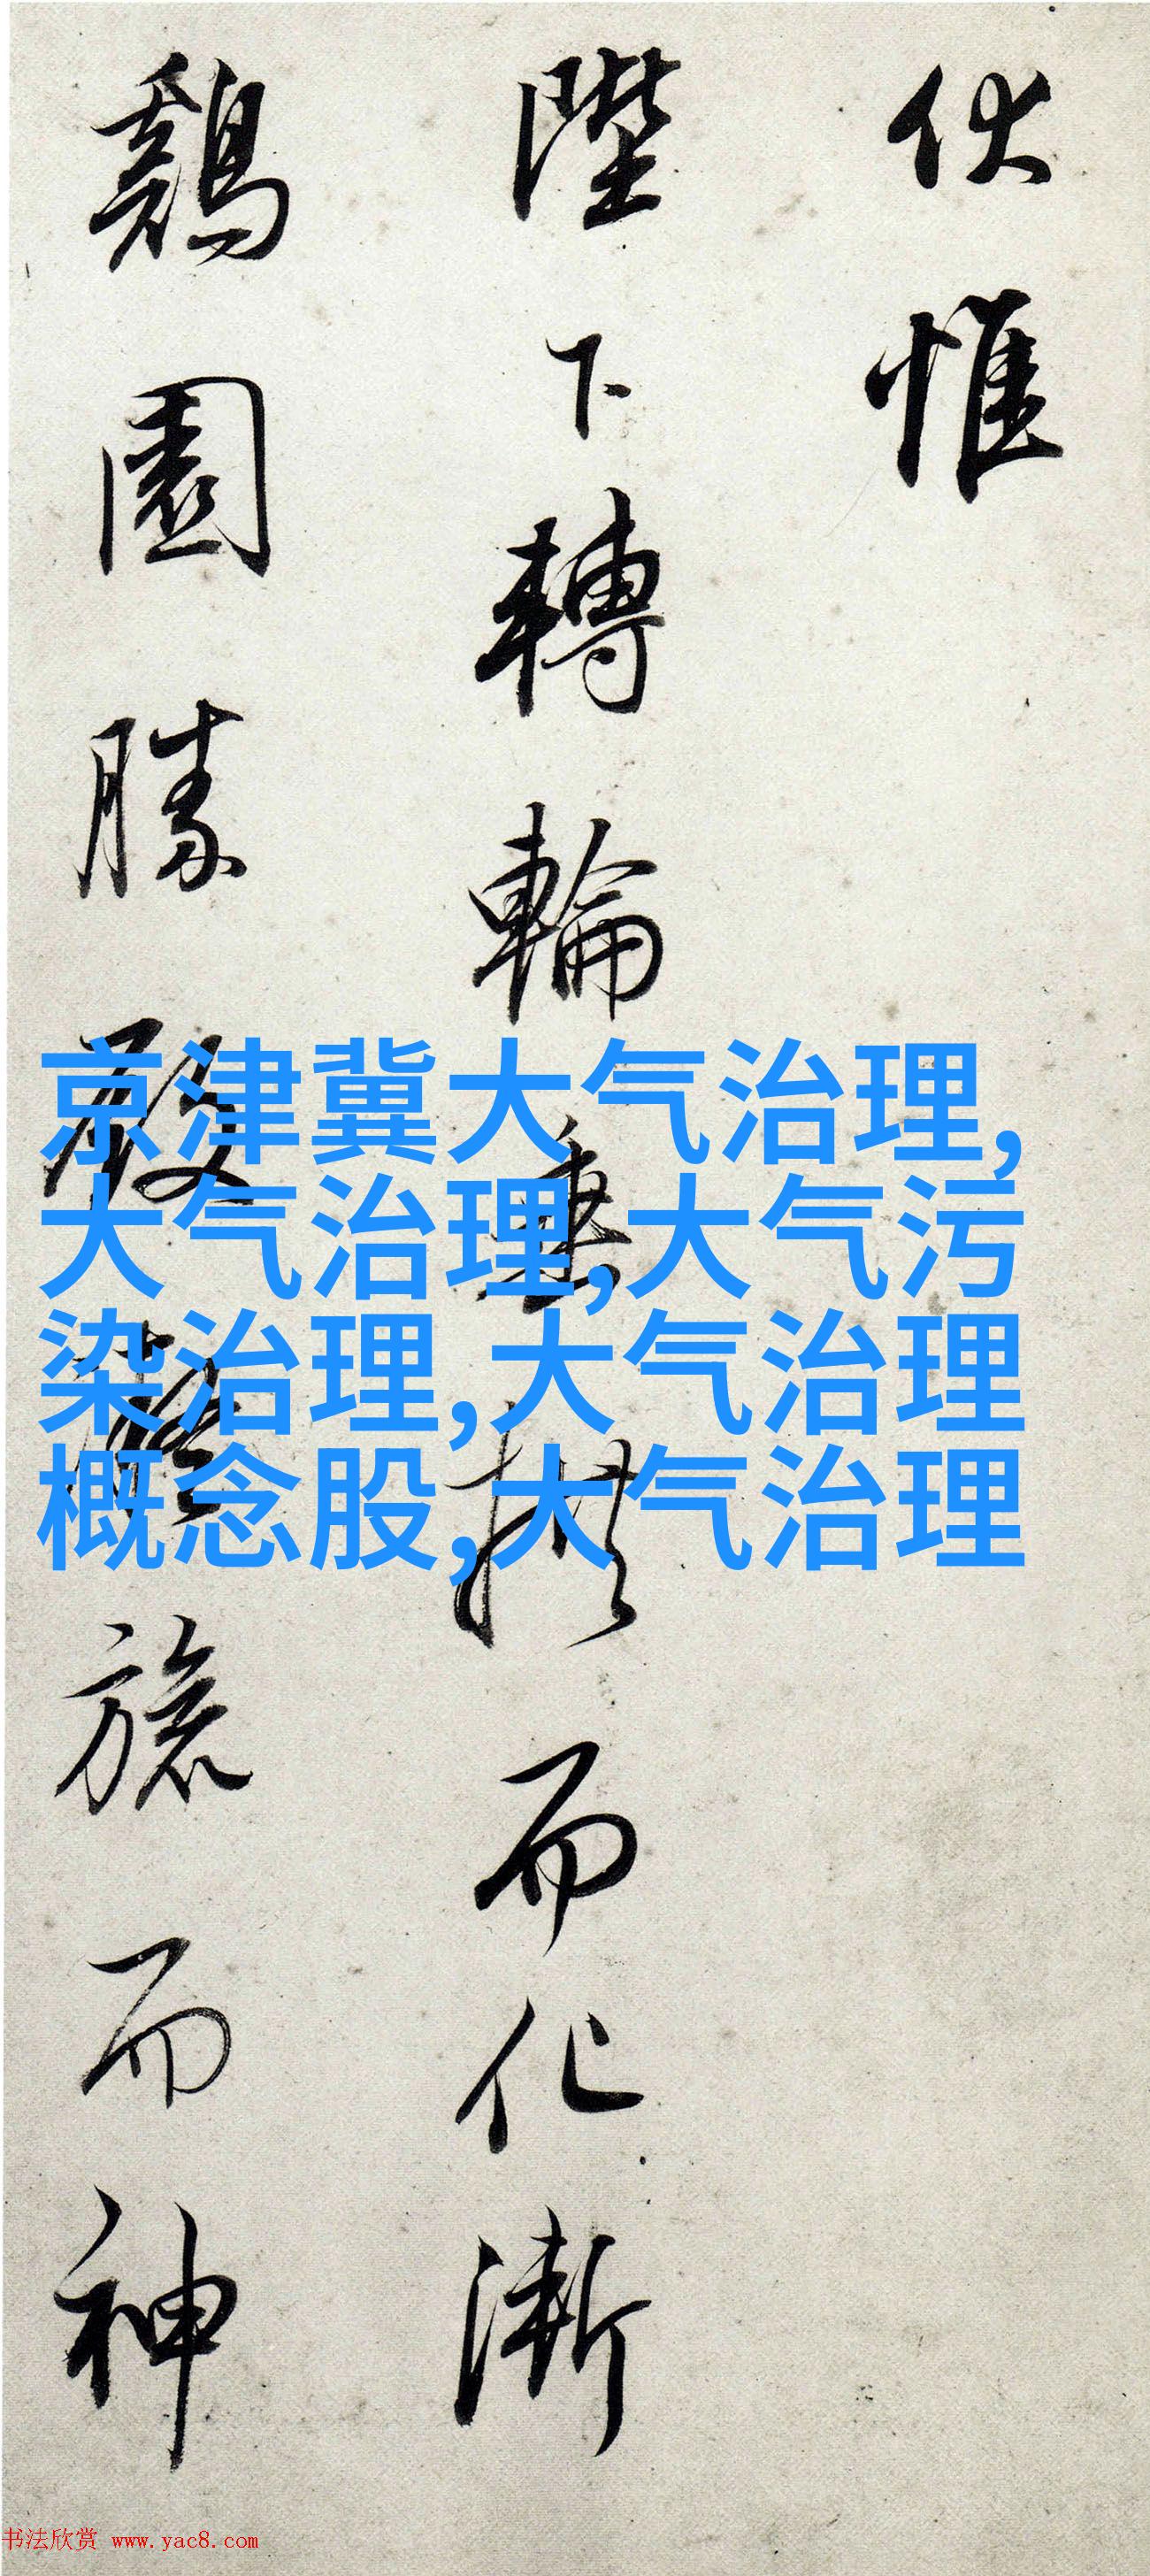 伏惟
陛下轉輪垂拱而化漸
鷄園勝殿凝旒而神
京津冀大气治理,
大气治理,大气污
染治理,大气治理
概念股,大气治理
书法欣赏 www.yac8.com